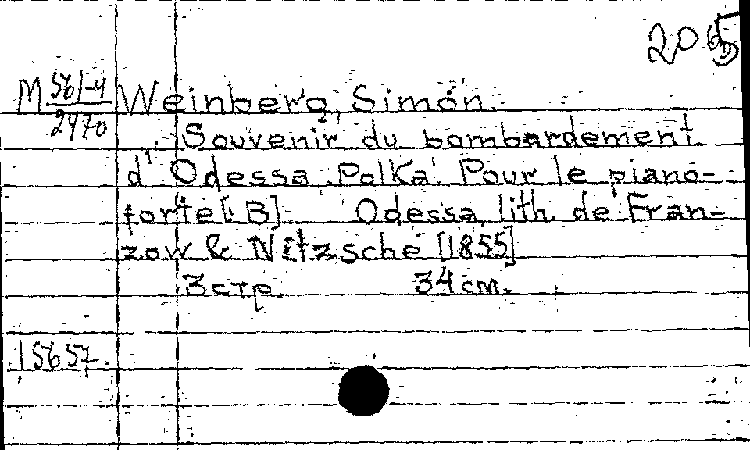 M 56/-4 Weinberg, Simon.
2470
Souvenir du bombardement
d'Odessa. Polka. Pour le piano-
forte [B]. Odessa, lith. de Fran-
zow & Nitzsche [1855]
3 стр. 34 см.
15657.